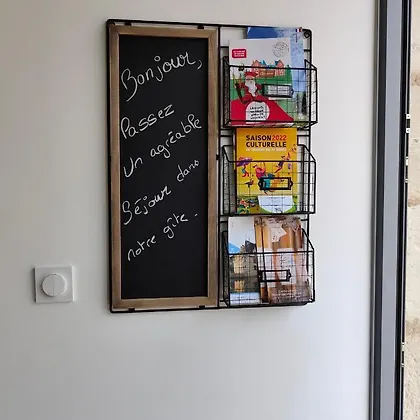 Bonjour,
Passez
un agréable
Séjour dans
notre gîte.
SAISON 2022
CULTURELLE